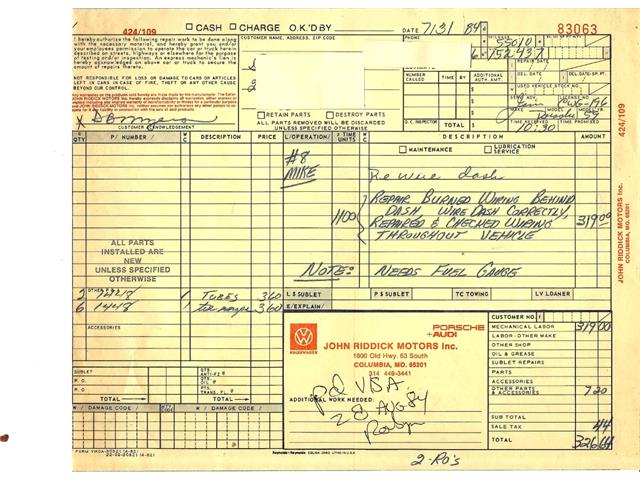 CASH CHARGE O.K.'D BY DATE 7/31 84 83063
424/109
I hereby authorize the following repair work to be done along
with the necessary material, and hereby grant you and/or
your employees permission to operate the car or truck herein
described on streets, highways or elsewhere for the purpose
of testing and/or inspection. An express mechanic's lien is
hereby acknowledged on above car or truck to secure the
amount of repairs thereto.
NOT RESPONSIBLE FOR LOSS OR DAMAGE TO CARS OR ARTICLES
LEFT IN CARS IN CASE OF FIRE, THEFT OR ANY OTHER CAUSE
BEYOND OUR CONTROL.
X
CUSTOMER ACKNOWLEDGEMENT
CUSTOMER NAME, ADDRESS, ZIP CODE
PHONE
MILEAGE
55010
752437
REPAIR DATE
NUMBER CALLED TIME BY ADDITIONAL AUTH. AMT.
DEL. DATE
USED VEHICLE STOCK NO.
59
TIME RECEIVED TIME PROMISED
10:30
RETAIN PARTS DESTROY PARTS
ALL PARTS REMOVED WILL BE DISCARDED
UNLESS SPECIFIED OTHERWISE
O.C. INSPECTOR TOTAL $
QTY P/ NUMBER / C DESCRIPTION PRICE L/OPERATION/ X TIME UNITS C DESCRIPTION AMOUNT
MAINTENANCE LUBRICATION SERVICE
#8
MIKE Re wire dash
REPAIR BURNED WIRING BEHIND
DASH. WIRE DASH CORRECTLY,
1100 REPAIRED & CHECKED WIRING 319.00
THROUGHOUT VEHICLE
ALL PARTS
INSTALLED ARE
NEW
UNLESS SPECIFIED
OTHERWISE
NOTE: NEEDS FUEL GAUGE
OTHER PTS
2 74418 1 TUBES 3.60
6 14418 1 3.60
L S SUBLET P S SUBLET TC TOWING LV LOANER
E/EXPLAIN/
ACCESSORIES
SUBLET
P. O.
P. O.
TOTAL TOTAL
W / DAMAGE CODE / W / DAMAGE CODE /
VOLKSWAGEN
PORSCHE
+AUDI
JOHN RIDDICK MOTORS Inc.
1800 Old Hwy. 63 South
COLUMBIA, MO. 65201
314 449-3441
ADDITIONAL WORK NEEDED:
pd VISA
28 Aug 84
Robyn
CUSTOMER NO.
MECHANICAL LABOR 319 00
LABOR-OTHER MAKE
OTHER SHOP
OIL & GREASE
SUBLET REPAIRS
PARTS
ACCESSORIES
OTHER PARTS & ACCESSORIES 7 20
SUB TOTAL
SALES TAX 44
TOTAL 326 64
2-RO's
424/109
JOHN RIDDICK MOTORS Inc.
COLUMBIA, MO. 65201